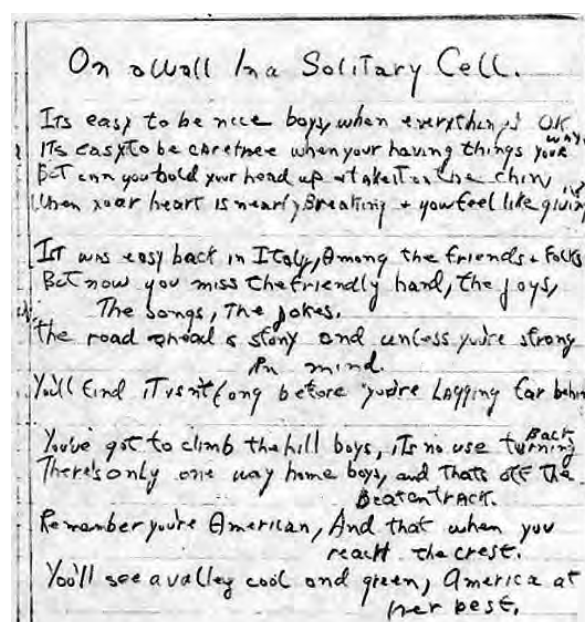 On a Wall In a Solitary Cell.
Its easy to be nice boys, when everything's OK
Its easy to be carefree when your having things your way.
But can you hold your head up + take it on the chin,
When your heart is nearly Breaking + you feel like givin in
It was easy back in Italy, Among the friends + Folks
But now you miss the friendly hand, the joys,
The songs, The jokes.
the road ahead is stony and unless you're strong
in mind.
You'll find it isn't long before you're Lagging far behin
You've got to climb the hill boys, its no use turning Back
There's only one way home boys, and thats off the
Beaten track.
Remember you're American, And that when you
reach the crest.
You'll see a valley cool and green, America at
her best.